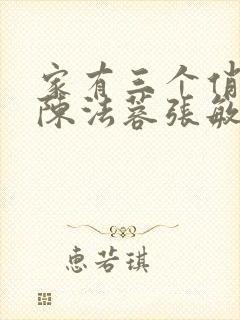 家有三个俏
陈法蓉张敏
惠若琪